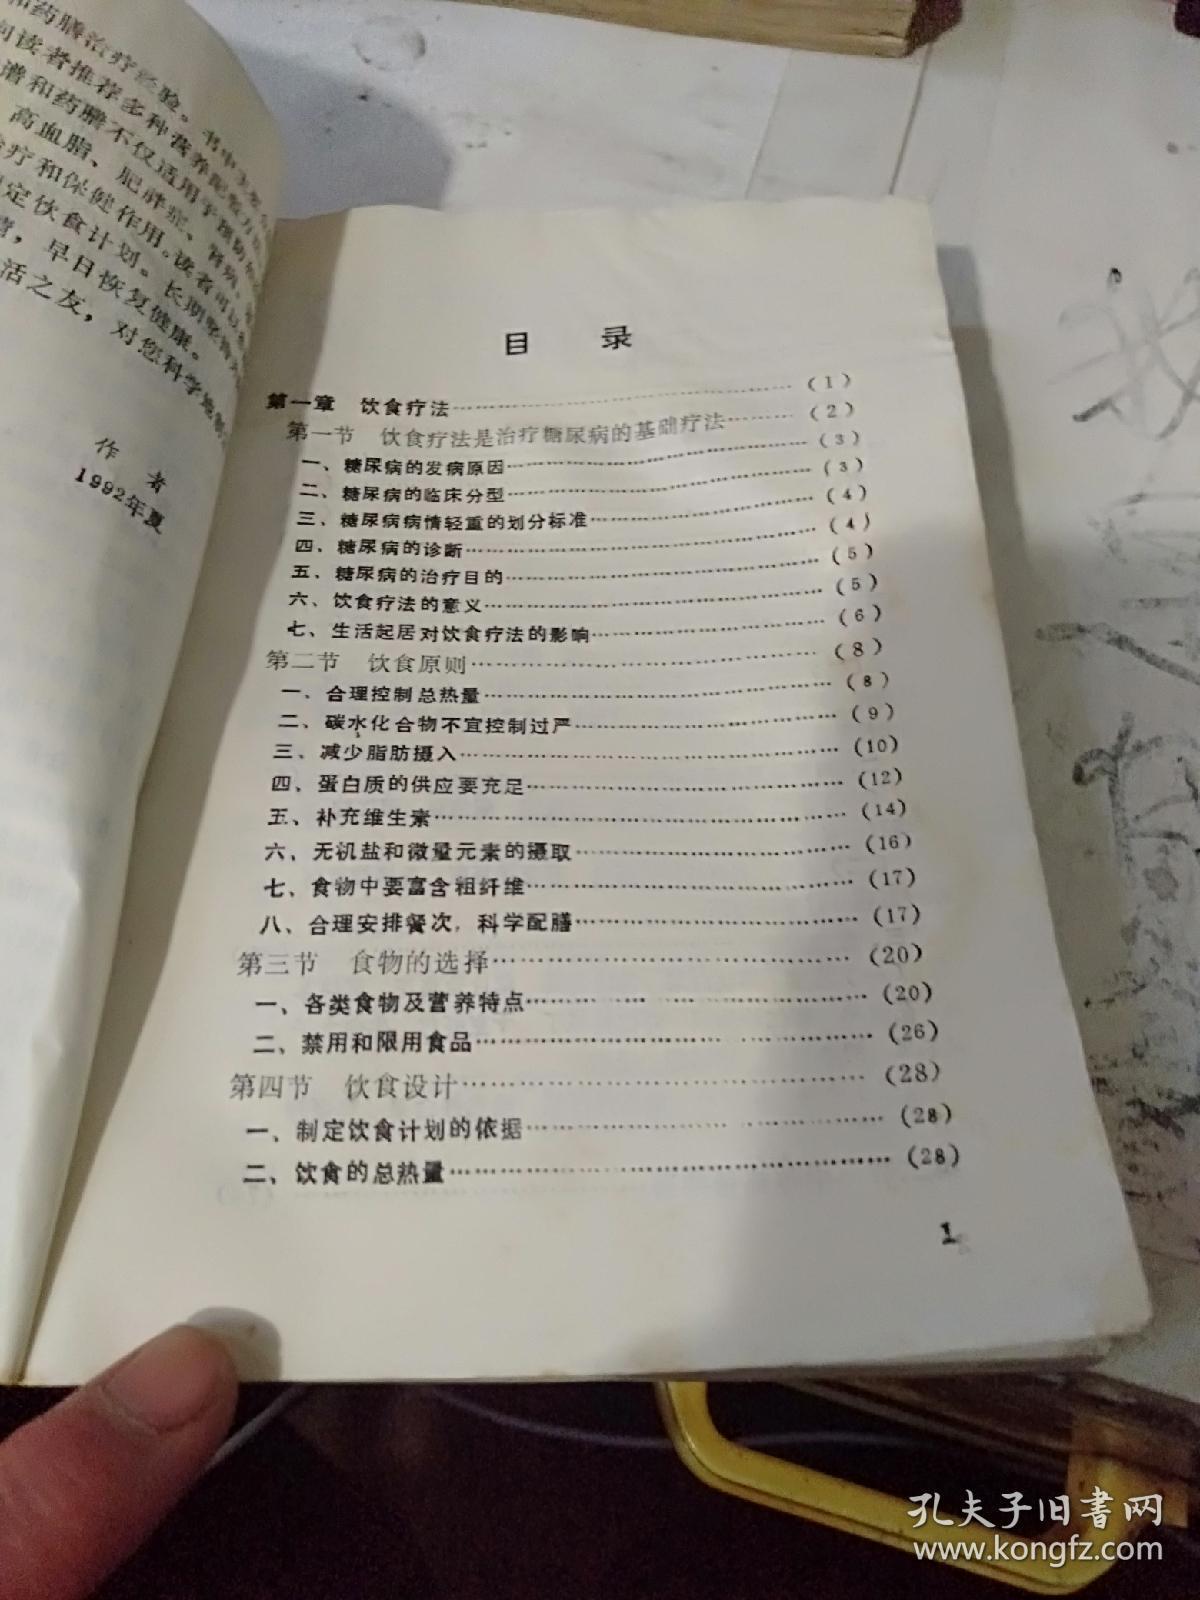 和药膳治疗经验。书中
向读者推荐多种营养配餐方
谱和药膳不仅适用于预防
高血脂、肥胖症、肾病、
治疗和保健作用。读者可以
定饮食计划。长期坚持
早日恢复健康。
活之友，对您科学地
作 者
1992年夏
目 录
第一章 饮食疗法……(1)
第一节 饮食疗法是治疗糖尿病的基础疗法……(2)
一、糖尿病的发病原因……(3)
二、糖尿病的临床分型……(3)
三、糖尿病病情轻重的划分标准……(4)
四、糖尿病的诊断……(4)
五、糖尿病的治疗目的……(5)
六、饮食疗法的意义……(5)
七、生活起居对饮食疗法的影响……(6)
第二节 饮食原则……(8)
一、合理控制总热量……(8)
二、碳水化合物不宜控制过严……(9)
三、减少脂肪摄入……(10)
四、蛋白质的供应要充足……(12)
五、补充维生素……(14)
六、无机盐和微量元素的摄取……(16)
七、食物中要富含粗纤维……(17)
八、合理安排餐次，科学配膳……(17)
第三节 食物的选择……(20)
一、各类食物及营养特点……(20)
二、禁用和限用食品……(26)
第四节 饮食设计……(28)
一、制定饮食计划的依据……(28)
二、饮食的总热量……(28)
1
孔夫子旧书网
www.kongfz.com